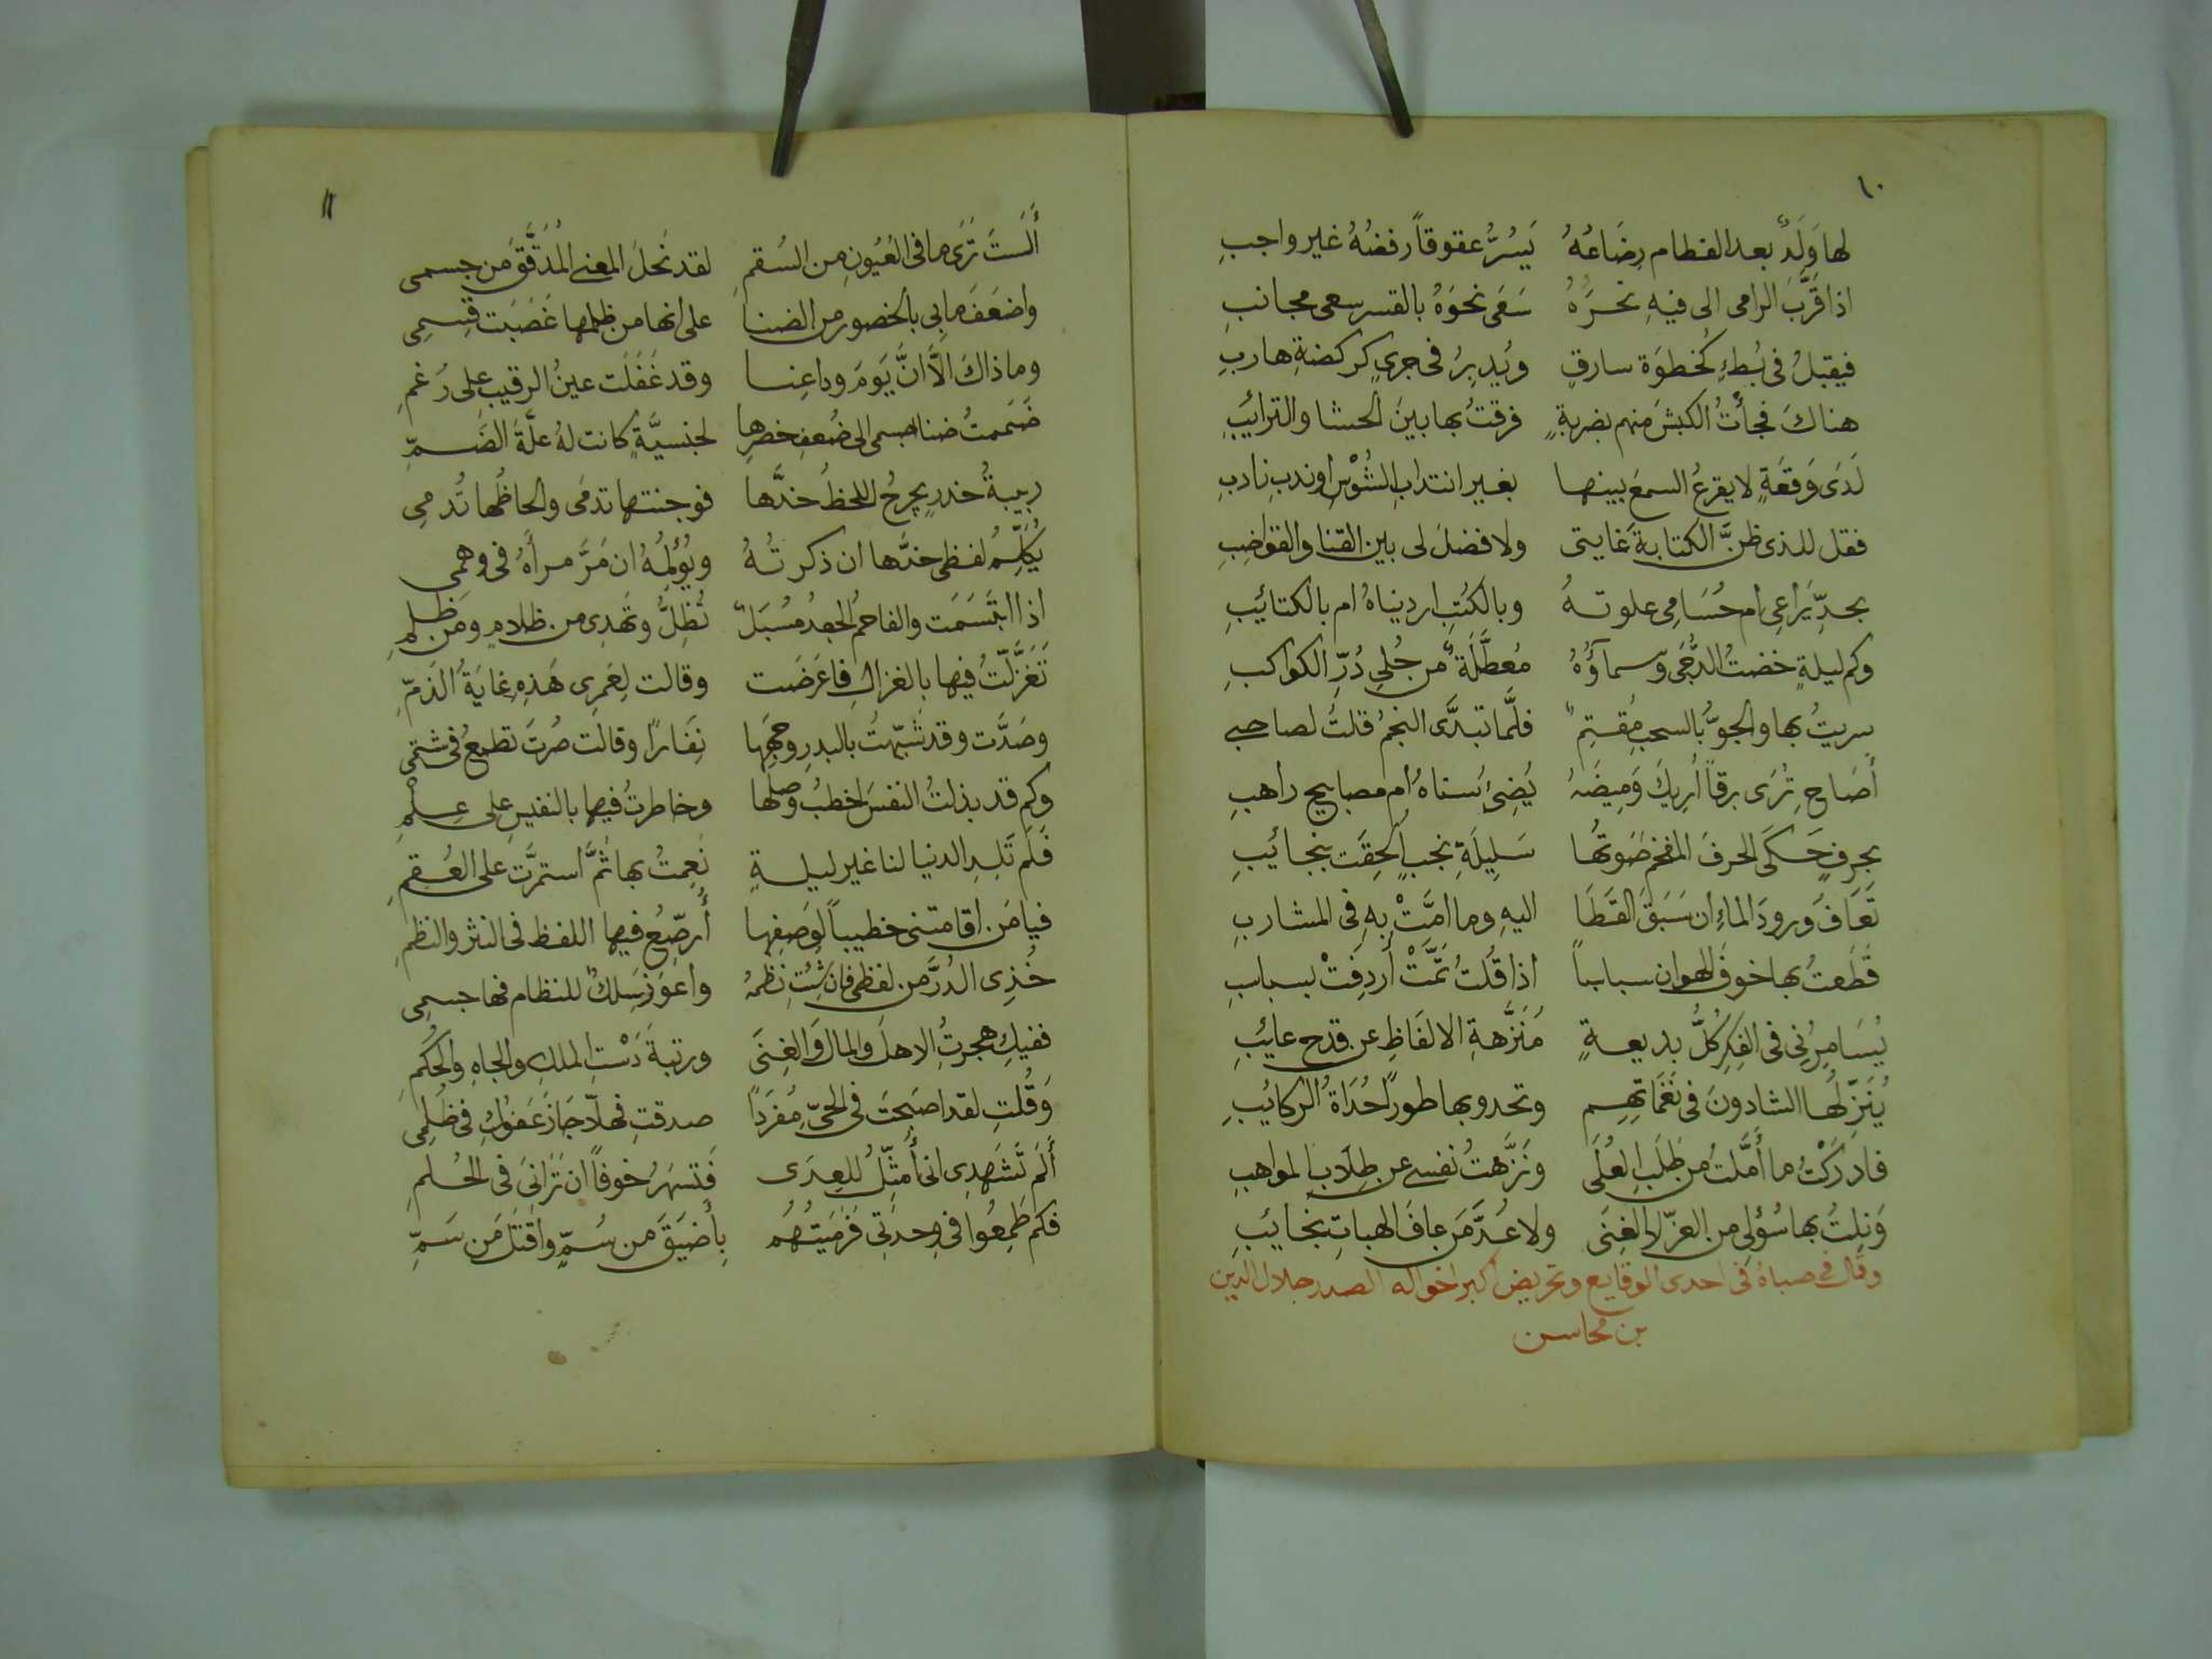 ١٠
لها وَلَدٌ بعد الفطام رِضَاعُهُ يَسُرُّ عقوقاً رفضُهُ غير واجبِ
اذا قَرَّبَ الرامى الى فيهِ نحرَهُ سَعَى نحوَهُ بالقسر سعى مجانبِ
فيقبلُ فى بُطءٍ كخطوَة سارقٍ ويُدبِرُ فى جرىٍ كركضةِ هاربِ
هناكَ فجأتُ الكبشَ منهم بضربةٍ فرقتُ بها بينَ الحشا والترائبِ
لَدَى وَقعَةٍ لا يقرعُ السمعَ بينها بغير انتدابِ الشُوْسِ او ندبِ نادبِ
فقل للذى ظنَّ الكتابةَ غايتى ولا فضلَ لى بين القنا والقواضِبِ
بحدِّ يَراعى ام حُسَامِى علوتهُ وبالكُتبِ اردیناهُ ام بالكتائبِ
وكم ليلةٍ خضتُ الدُّجَى وسماؤُهُ مُعطَّلَةٌ من حُلىِ دُرِّ الكواكبِ
سريتُ بها والجوُّ بالسحبِ مُقتِمٌ فلَّما تبدَّى النجمُ قلتُ لصاحبى
أصَاحِ تُرَى برقاً أُرِيكَ وَمِيضَهُ يُضِئُ سَناهُ ام مصابيح راهبِ
بحرفٍ حكَى الحرفَ المفخم صَوتُها سَلِيلَةِ نجبٍ أُلحِقَت بنجائبِ
تَعَافُ وُرودَ الماءِ ان سَبَقَ القَطَا اليهِ وما امَّتْ بِهِ فى المشاربِ
قَطَعتُ بها خوفَ الهوان سباسباً اذا قُلتُ تمَّتْ أُردِفَتْ بسباسبِ
يُسَامِرُنى فى الفِكرِ كُلُّ بديعةٍ مُنَزَّهةِ الالفَاظِ عن قدح عائبِ
يُنَزِّلُها الشادونَ فى نَغَمَاتِهِم وتحدو بها طوراً حُدَاةُ الركائبِ
فادركتُ ما أَمَّلتُ من طَلَبِ العُلَى ونَزَّهتُ نفسى عن طِلَابِ المواهبِ
وَنِلتُ بها سُؤلى من العزّ لا الغِنَى ولا عُدَّ مَن عافَ الهباتِ بخائبِ
وقال فى صباهُ فى احدى الوقايع وتحريض اكبر اخواله الصدر جلال الدين
بن محاسن
١١
أَلَستَ تَرَى ما فى العُيُونِ من السُقمِ لقد نَحلَ المعنى المُدَقَّقُ من جسمى
واضعَفَ ما بى بالخصور من الضنا على انها من ظلمها غَصَبَت قِسمِى
وما ذاكَ الَّا انَّ يَومَ وداعِنا وقد غَفَلَت عينُ الرقيبِ على رَغمِ
ضَمَمتُ ضنا جسمى الى ضُعفِ خصرها لجنسيَّةٍ كانت لهُ علّةُ الضَمِّ
ربيبةُ خدرٍ يجرحُ اللحظُ خدَّها فوجنتها تدمَى والحاظُها تُدمِى
يُكلِّمُ لفظى خدَّها ان ذكرتُهُ ويُؤلِمُهُ ان مَرَّ مرآهُ فى وهمى
اذا ابتَسَمَت والفاحمُ الجعدُ مُسبَلٌ تُظِلُّ وتَهدِى من ظلامٍ ومن ظَلمِ
تَغَزَّلتُ فيها بالغزالِ فاعرَضَت وقالت لعَمرِى هَذِهِ غايَةُ الذمِّ
وصَدَّت وقد شَبّهتُ بالبدرِ وجهَها نِفَاراً وقالت صُرتَ تطمعُ فى شتمى
وكم قد بذلتُ النفسَ اخطبُ وصلَها وخاطرتُ فيها بالنفيسِ على عِلمِ
فَلَم تَلِدِ الدنيا لنا غير ليلةٍ نَعِمتُ بها ثمَّ استمرَّت على العُقمِ
فيا مَن اقامتنى خطيباً لوَصفِها أُرصِّعُ فيها اللفظ فى النثر والنظمِ
خُذِى الدُرَّ من لفظى فان شِئتِ نَظمَهُ واعوَزَ سِلكٌ للنظام فها جسمِى
ففيكِ هجرتُ الاهلَ والمالَ والغِنَى ورتبةَ دَسْتِ الملكِ والجاهِ والحُكمِ
وَقُلتِ لقد اصبَحتَ فى الحىِّ مُفرَداً صدقتِ فهلّا جَازَ عَفوُكِ فى ظُلمِى
أَلَم تَشهَدِى انى أُمَثّلُ للعِدَى فَتسهَرُ خوفاً ان تَرَانِىَ فى الحُلمِ
فكم طَمِعُوا فى وحدَتِى فَرَمَيتُهُم بِأَضيَقَ من سُمٍّ واقتَلَ مَن سَمِّ